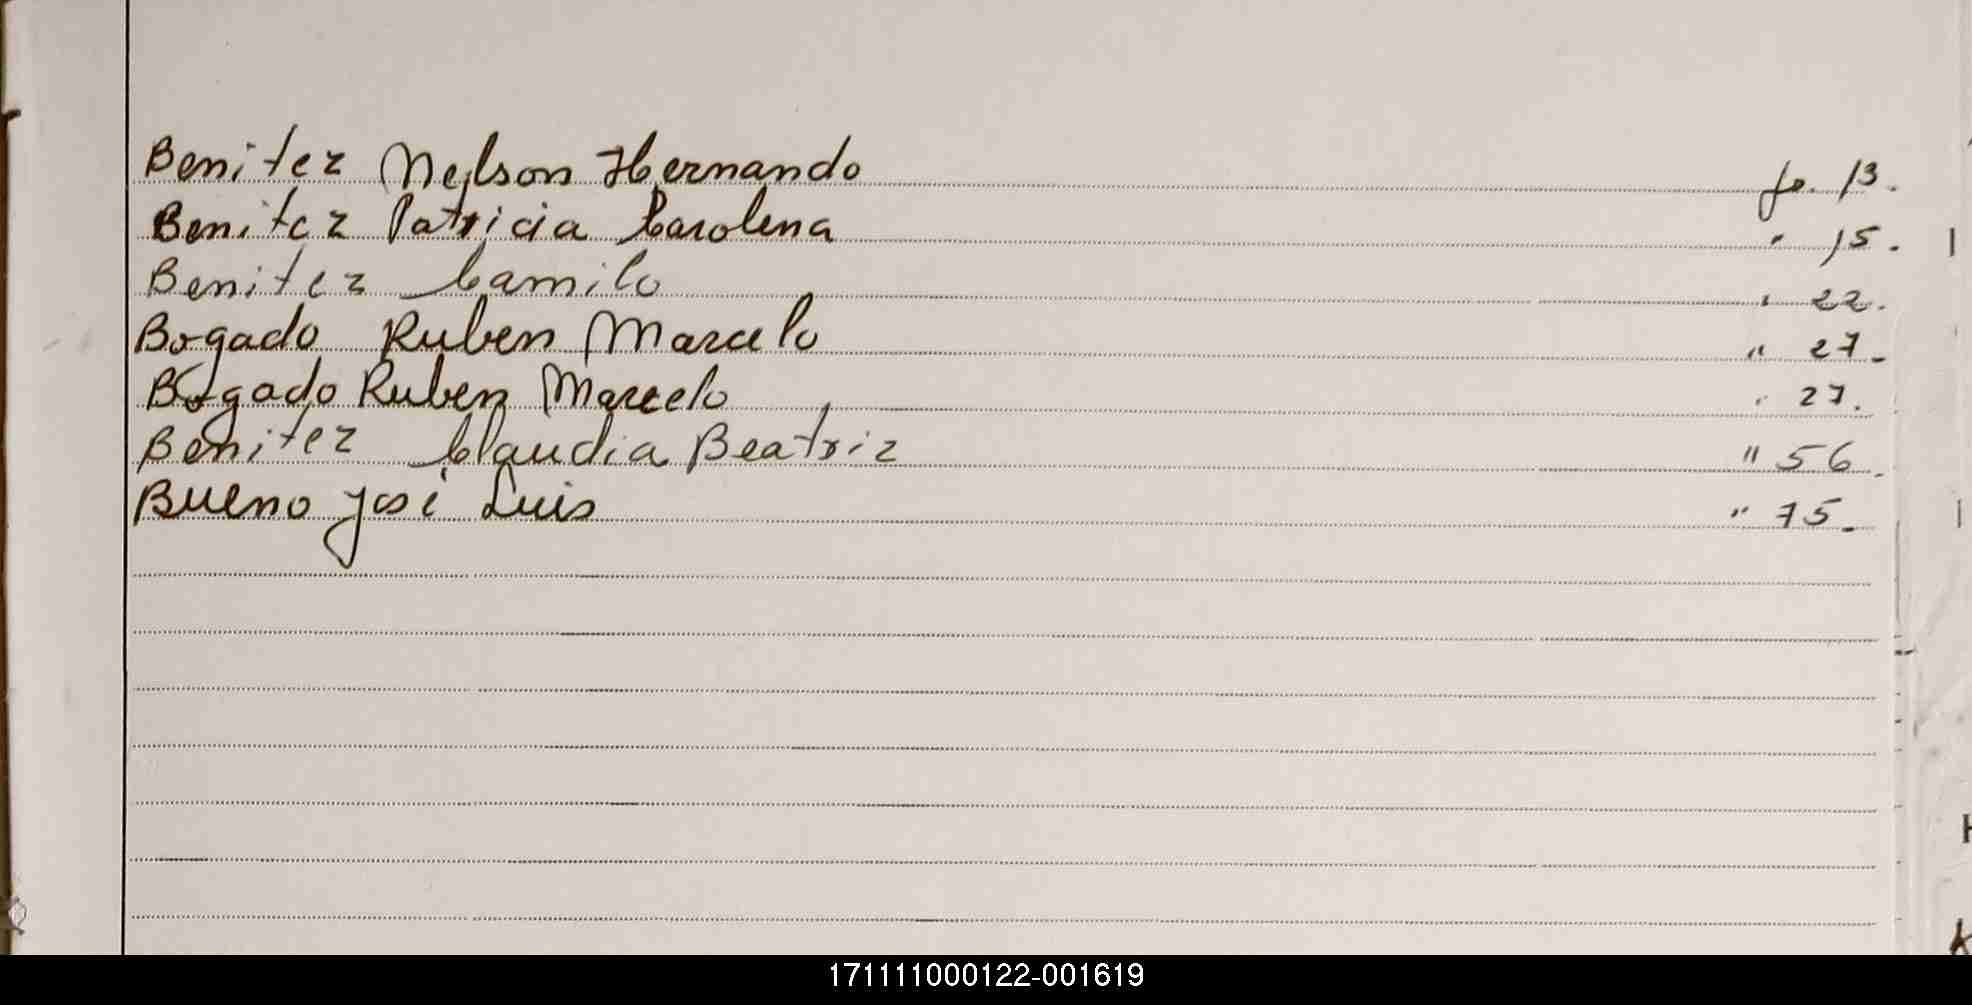 Benitez Nelson Hernando fo. 13.
Benitez Patricia Carolina " 15.
Benitez Camilo " 22.
Bogado Ruben Marcelo " 27.
Bogado Ruben Marcelo " 27.
Benitez Claudia Beatriz " 56.
Bueno José Luis " 75.
171111000122-001619